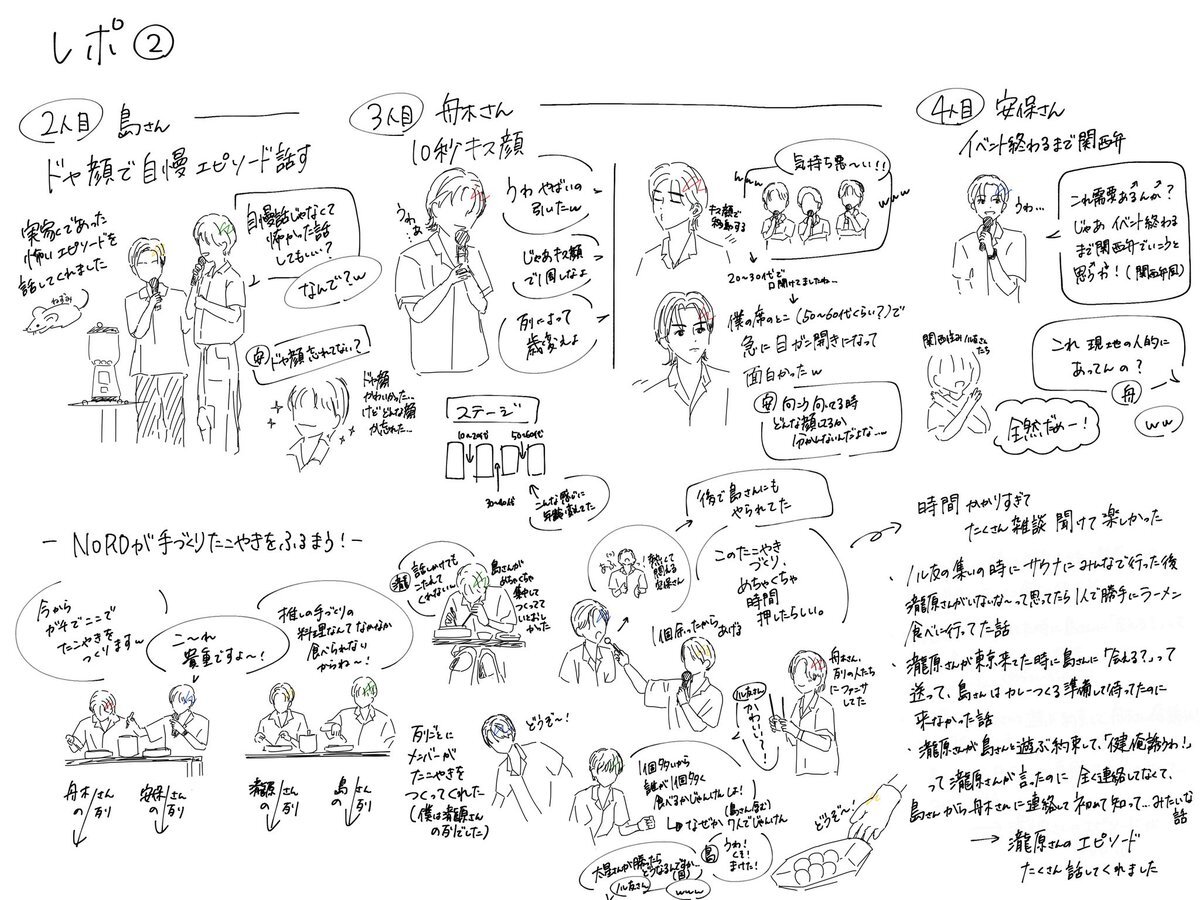 レポ②
2人目 島さん
ドヤ顔で自慢エピソード話す
実家であった
怖いエピソードを
話してくれました
ねずみ
自慢話じゃなくて
怖かった話
してもいい?
なんで?w
安 ドヤ顔忘れてない?
ドヤ顔
かわいかった…
けどどんな顔
か忘れた…
3人目 舟木さん
10秒キス顔
うわ
うわ やばいの
引いたw
じゃあキス顔
で1周しなよ
列によって
歳で変えよ
ステージ
10~20代
50~60代
30~40代
こんな感じに
年齢変えてた
キス顔で
移動する
www
気持ち悪~い!!
www
20~30代で
口開けてましたね…
僕の席のとこ(50~60代くらい?)で
急に目ガン開きになって
面白かったw
安 向こう向いてる時
どんな顔してるか
分かんないんだよな…w
4人目 安保さん
イベント終わるまで関西弁
うわ…
これ需要あるんか?
じゃあイベント終わる
まで関西弁でいこうと
思うや!(関西弁風)
関西住みノル友さん
たち
これ 現地の人的に
あってんの?
舟
全然だめー!
ww
- NORDが手づくりたこやきをふるまう!-
今から
ガチでここで
たこやきを
つくります~
こ~れ
貴重ですよ~!
推しの手づくりの
料理なんてなかなか
食べられない
からね~!
舟木さんの列
安保さんの列
瀧原さんの列
島さんの列
瀧 話しかけても
こたえて
くれないw
島さんが
めちゃくちゃ
集中して
つくってて
いとおし
かった
列ごとに
メンバーが
たこやきを
つくってくれた
(僕は瀧原さん
の列でした)
どうぞ~!
熱くて
悶える
安保さん
後で島さんにも
やられてた
このたこやき
づくり、
めちゃくちゃ
時間
押したらしい。
1個余ったから
あげる
舟木さん、
列の人たち
にファンサ
してた
ノル友さん
かわいい~!
1個多いから
誰が1個多く
食べるかじゃんけんしよ!
(島さん含む)
なぜか 7人でじゃんけん
大星さんが勝ったら
どうなるんですか…
ノル友さん
www
島 うわ!
くそ!
まけた!
どうぞ~!
時間かかりすぎて
たくさん雑談聞けて楽しかった
・ノル友の集いの時にサウナにみんなで行った後
瀧原さんがいないな~って思ってたら1人で勝手にラーメン
食べに行ってた話
・瀧原さんが東京来てた時に島さんに「会える?」って
送って、島さんはカレーつくる準備して待ってたのに
来なかった話
・瀧原さんが島さんと遊ぶ約束して、「健俺誘うわ!」
って瀧原さんが言ったのに全く連絡してなくて、
島さんから舟木さんに連絡して初めて知って…みたいな
話
→ 瀧原さんのエピソード
たくさん話してくれました